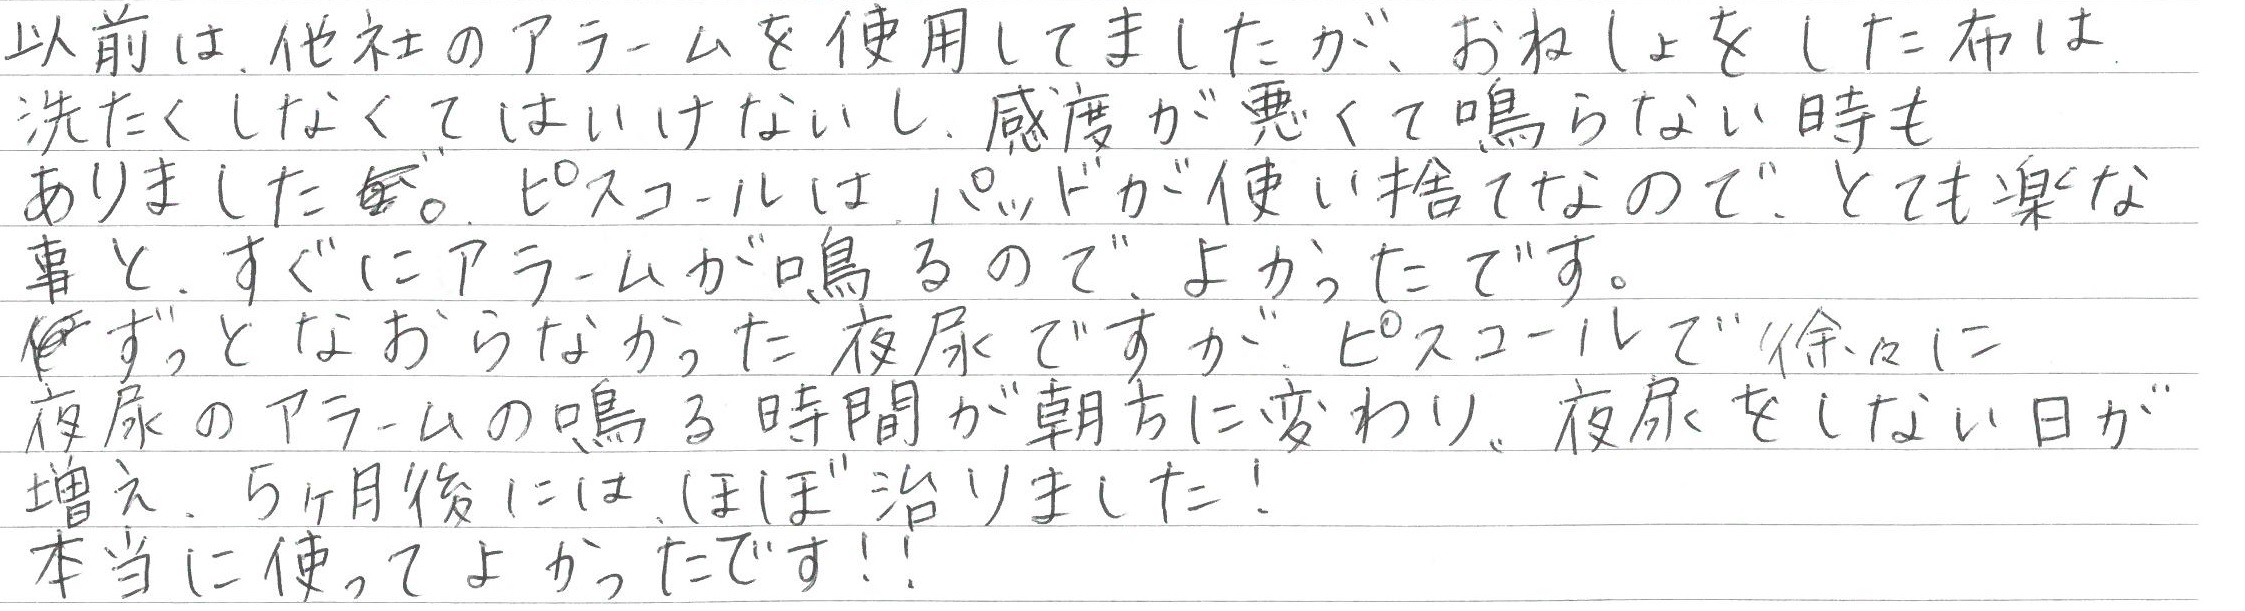 以前は、他社のアラームを使用してましたが、おねしょをした布は
洗たくしなくてはいけないし、感度が悪くて鳴らない時も
ありました。ピスコールは、パッドが使い捨てなので、とても楽な
事と、すぐにアラームが鳴るので、よかったです。
ずっとなおらなかった夜尿ですが、ピスコールで徐々に
夜尿のアラームの鳴る時間が朝方に変わり、夜尿をしない日が
増え、5ヶ月後には、ほぼ治りました!
本当に使ってよかったです!!